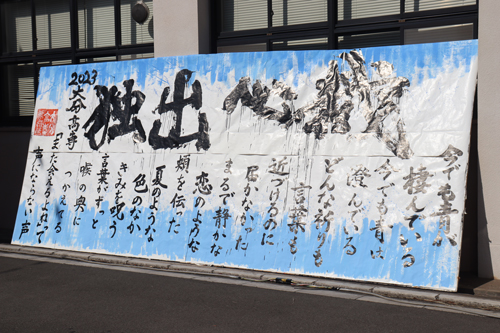 独出心裁
今でも青が
棲んでいる
今でも青は
澄んでいる
どんな祈りも
言葉も
近づけるのに
届かなかった
まるで静かな
恋のような
頬を伝った
夏のような
色のなか
きみを呪う
言葉がずっと
喉の奥に
つかえてる
「また会えるよね」って
声にならない声
2023
大分高専